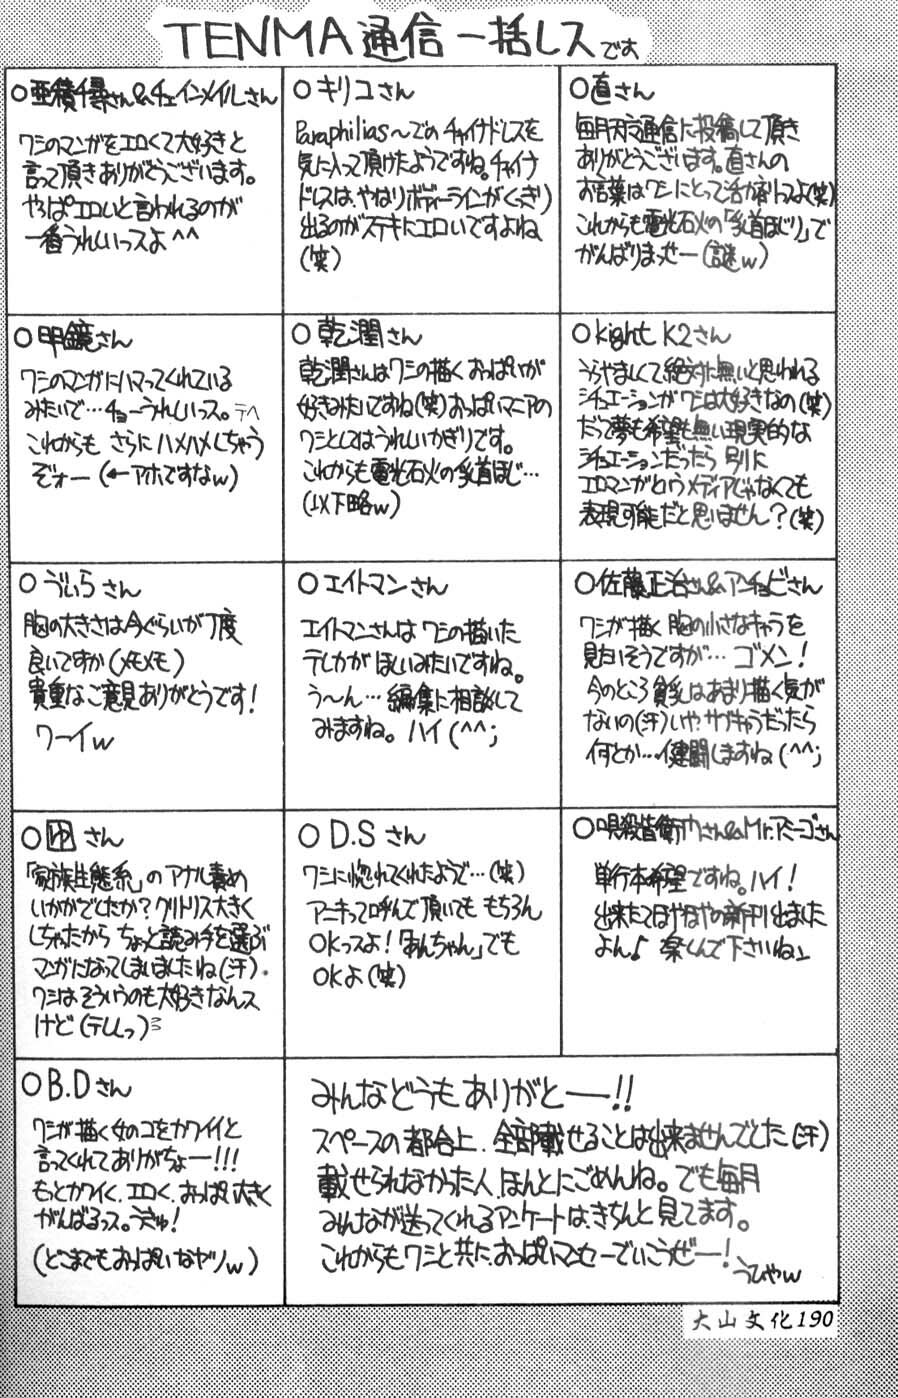 TENMA通信一括レスです
○亜積千尋さん&チェインメイルさん
ワシのマンガをエロくて大好きと
言って頂きありがとうございます。
やっぱエロいと言われるのが
一番うれしいっスよ^^
○キリコさん
Paraphilias〜でのチャイナドレスを
気に入って頂けたようですね。チャイナ
ドレスは、やはりボディーラインがくっきり
出るのがステキにエロいですよね
(笑)
○直さん
毎月天魔通信に投稿して頂き
ありがとうございます。直さんの
お言葉はワシにとって活力剤っスよ(笑)
これからも電光石火の「乳首ほじり」で
がんばりまっせー(謎w)
○甲鏡さん
ワシのマンガにハマってくれている
みたいで…チョーうれしいっス。テヘ
これからも さらにハメハメしちゃう
ぞォー(←アホですなw)
○乾潤さん
乾潤さんはワシの描くおっぱいが
好きみたいですね(笑)おっぱいマニアの
ワシとしてはうれしいかぎりです。
これからも電光石火の乳首ほじ…
(以下略w)
○Kight K2さん
うらやましくて絶対に無いと思われる
シチュエーションがワシは大好きなの(笑)
だって夢も希望も無い現実的な
シチュエーションだったら 別に
エロマンガというメディアじゃなくても
表現可能だと思いません？(笑)
○づぃらさん
胸の大きさは今ぐらいが丁度
良いですか(メモメモ)
貴重なご意見ありがとうです！
ワーイw
○エイトマンさん
エイトマンさんは ワシの描いた
テレカが ほしいみたいですね。
う〜ん… 編集に相談して
みますね。ハイ(^^;
○佐藤正治さん&アンチョビさん
ワシが描く胸の小さなキャラを
見たいそうですが… ゴメン！
今のところ貧乳はあまり描く気が
ないの(汗)いや、サブキャラだったら
何とか…健闘しますね(^^;
○ゆさん
「家族生態系」のアナル責め
いかがでしたか？クリトリス大きく
しちゃたから ちょっと読み手を選ぶ
マンガになってしまいましたね(汗)。
ワシはそういうのも大好きなんス
けど(テレっ)
○D.Sさん
ワシに惚れてくれたようで…(笑)
アニキって呼んで頂いても もちろん
OKっスよ！「あんちゃん」でも
OKよ(笑)
さん&Mr.アミーゴさん
単行本希望ですね。ハイ！
出来たてほやほやの新刊出ました
よん♪ 楽しんで下さいね」
○B.Dさん
ワシが描く女のコをカワイイと
言ってくれてありがちょー!!!
もっとカワイく、エロく、おっぱい大きく
がんばるっス。うきゅ！
(どこまでもおっぱいなヤツw)
みんなどうもありがとー!!
スペースの都合上、全部載せることは出来ませんでした(汗)
載せられなかった人、ほんとにごめんね。でも毎月
みんなが送ってくれるアンケートは、きちんと見てます。
これからもワシと共に、おっぱいマンセーでいこうぜー！
うひゃw
大山文化190